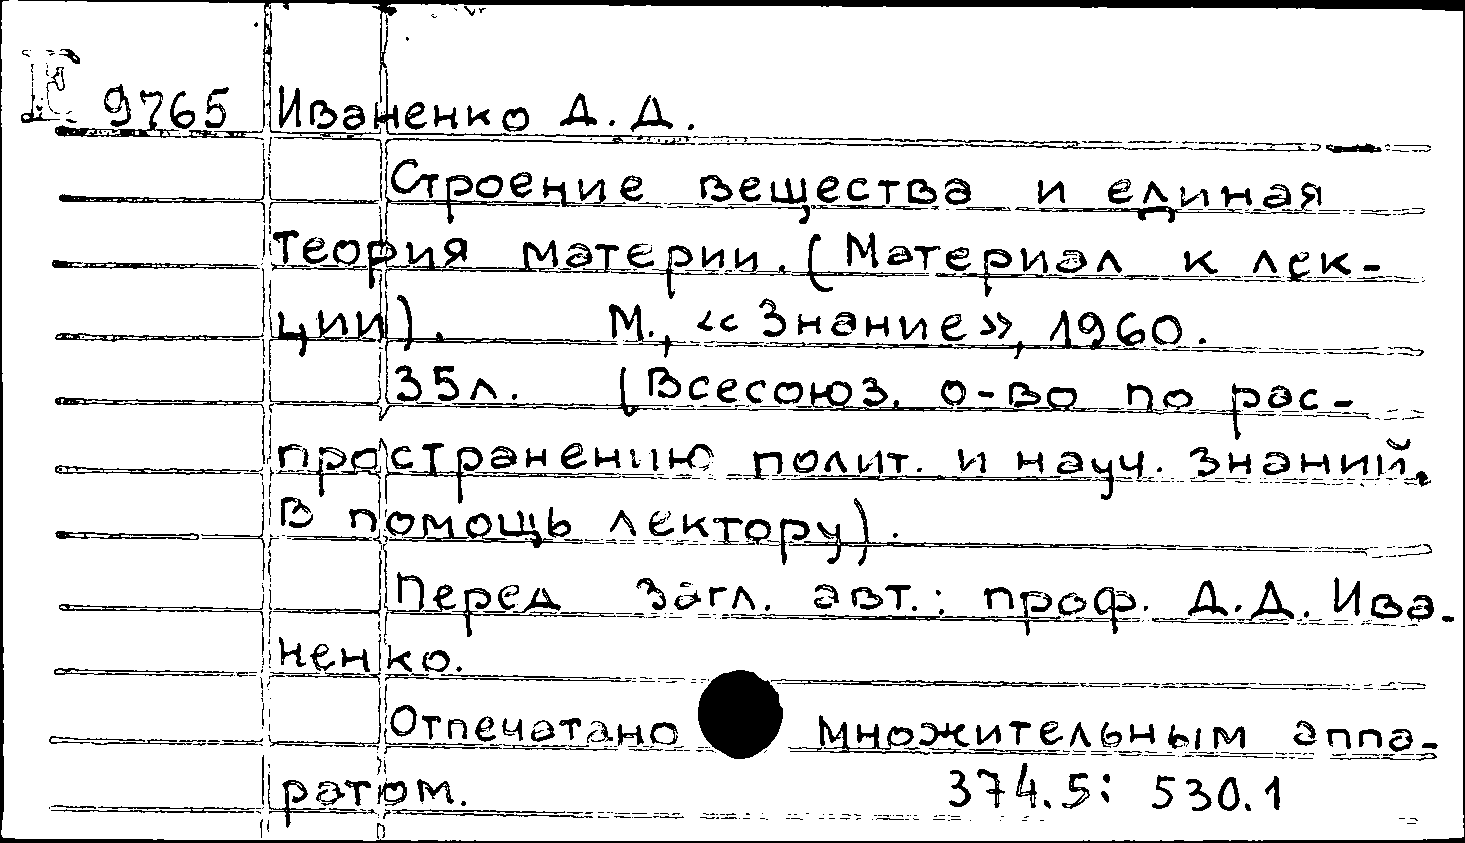 F 9765 Иваненко Д. Д.
Строение вещества и единая
теория материи. (Материал к лек-
ции). М., «Знание», 1960.
35л. (Всесоюз. о-во по рас-
пространению полит. и науч. знаний.
В помощь лектору).
Перед загл. авт.: проф. Д.Д. Ива-
ненко.
Отпечатано множительным аппа-
ратом. 374.5: 530.1